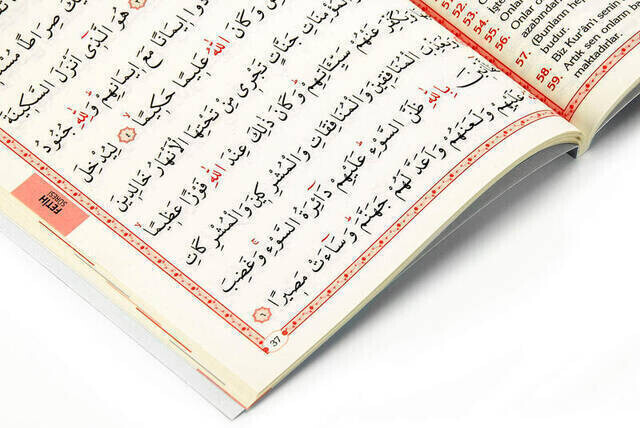 صِرَاطًا
هُوَ الَّذِي اَنْزَلَ السَّكِينَةَ
اِيمَانًا مَعَ اِيمَانِهِمْ وَلِلّٰهِ جُنُودُ
وَكَانَ اللّٰهُ عَلِيمًا حَكِيمًا ٤ لِيُدْخِلَ
جَنَّاتٍ تَجْرِي مِنْ تَحْتِهَا الْاَنْهَارُ خَالِدِينَ
عَنْهُمْ سَيِّـَٔاتِهِمْ وَكَانَ ذٰلِكَ عِنْدَ اللّٰهِ فَوْزًا عَظِيمًا
الْمُنَافِقِينَ وَالْمُنَافِقَاتِ وَالْمُشْرِكِينَ وَالْمُشْرِكَاتِ
بِاللّٰهِ ظَنَّ السَّوْءِ عَلَيْهِمْ دَٓائِرَةُ السَّوْءِ وَغَضِبَ
عَلَيْهِمْ وَلَعَنَهُمْ وَاَعَدَّ لَهُمْ جَهَنَّمَ وَسَٓاءَتْ مَصِيرًا ٦
FETİH
SÛRESİ
37
52.
53.
54. İşte
55. Onlar
56. azabından
57. (Bunların
budur.
58. Biz Kur'ân'ı senin
59. Artık sen onların
maktadırlar.